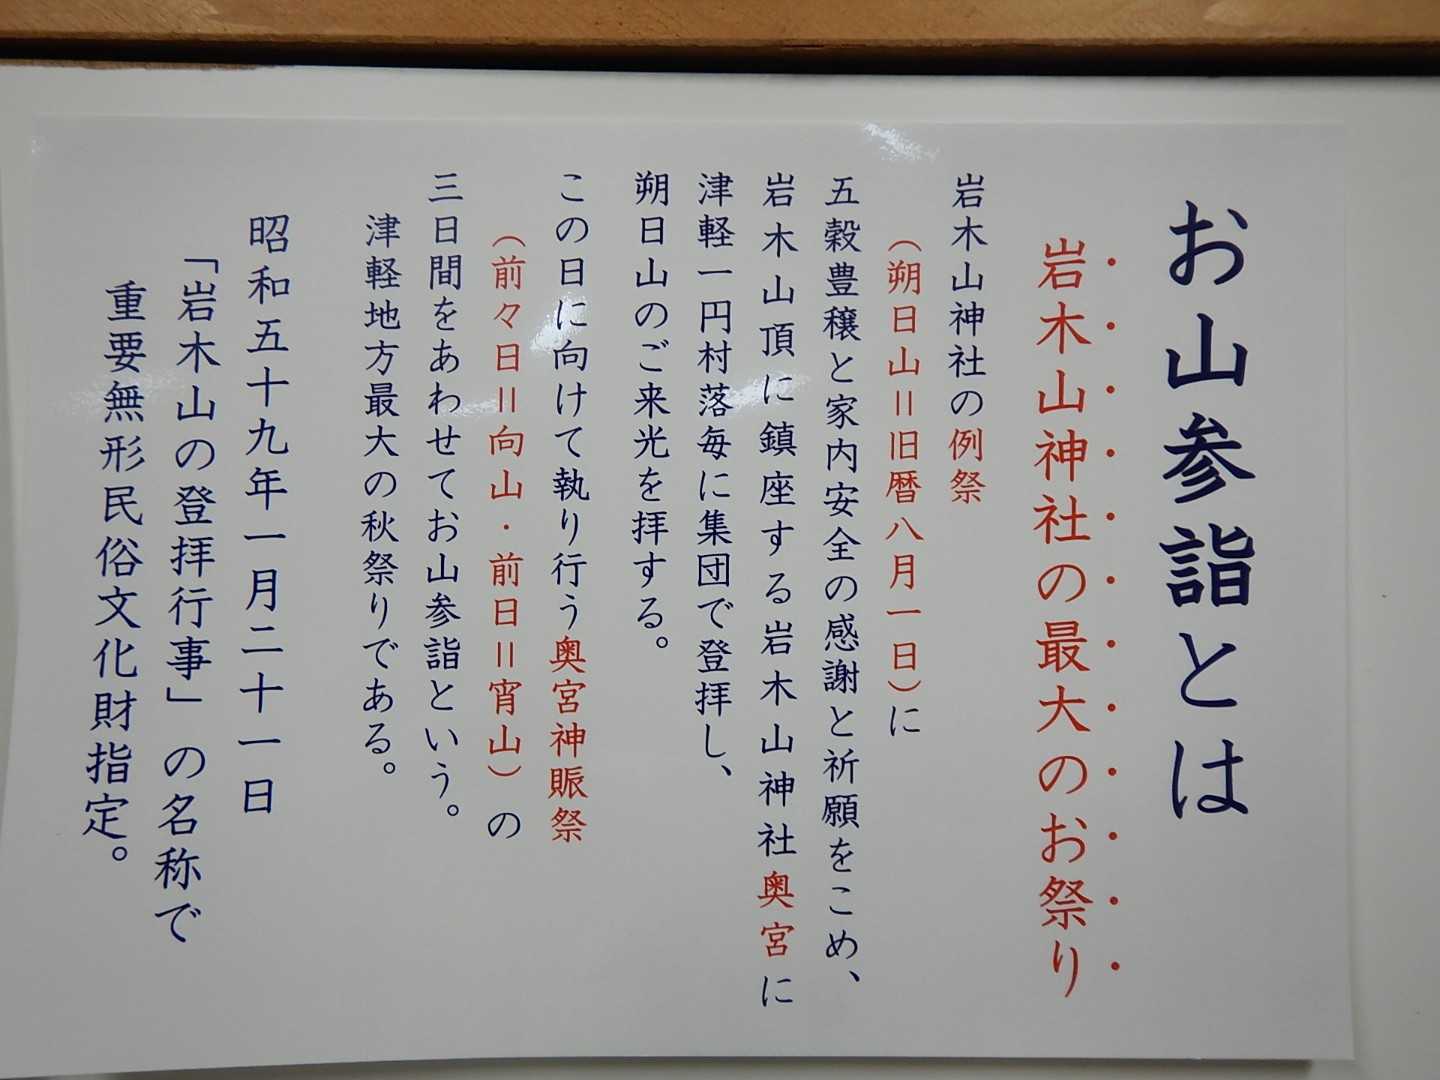 お山参詣とは
岩木山神社の最大のお祭り
岩木山神社の例祭
（朔日山＝旧暦八月一日）に
五穀豊穣と家内安全の感謝と祈願をこめ、
岩木山頂に鎮座する岩木山神社奥宮に
津軽一円村落毎に集団で登拝し、
朔日山のご来光を拝する。
この日に向けて執り行う奥宮神賑祭
（前々日＝向山・前日＝宵山）の
三日間をあわせてお山参詣という。
津軽地方最大の秋祭りである。
昭和五十九年一月二十一日
「岩木山の登拝行事」の名称で
重要無形民俗文化財指定。